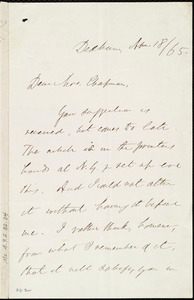 Dedham, Nov. 18/65.
Dear Mrs. Chapman,
Your suggestion is
received, but comes too late.
The article is in the printers
hands at N.Y. & set up ere
this. And I could not alter
it without having it before
me. I rather think, however,
from what I remember of it,
that it will satisfy you in